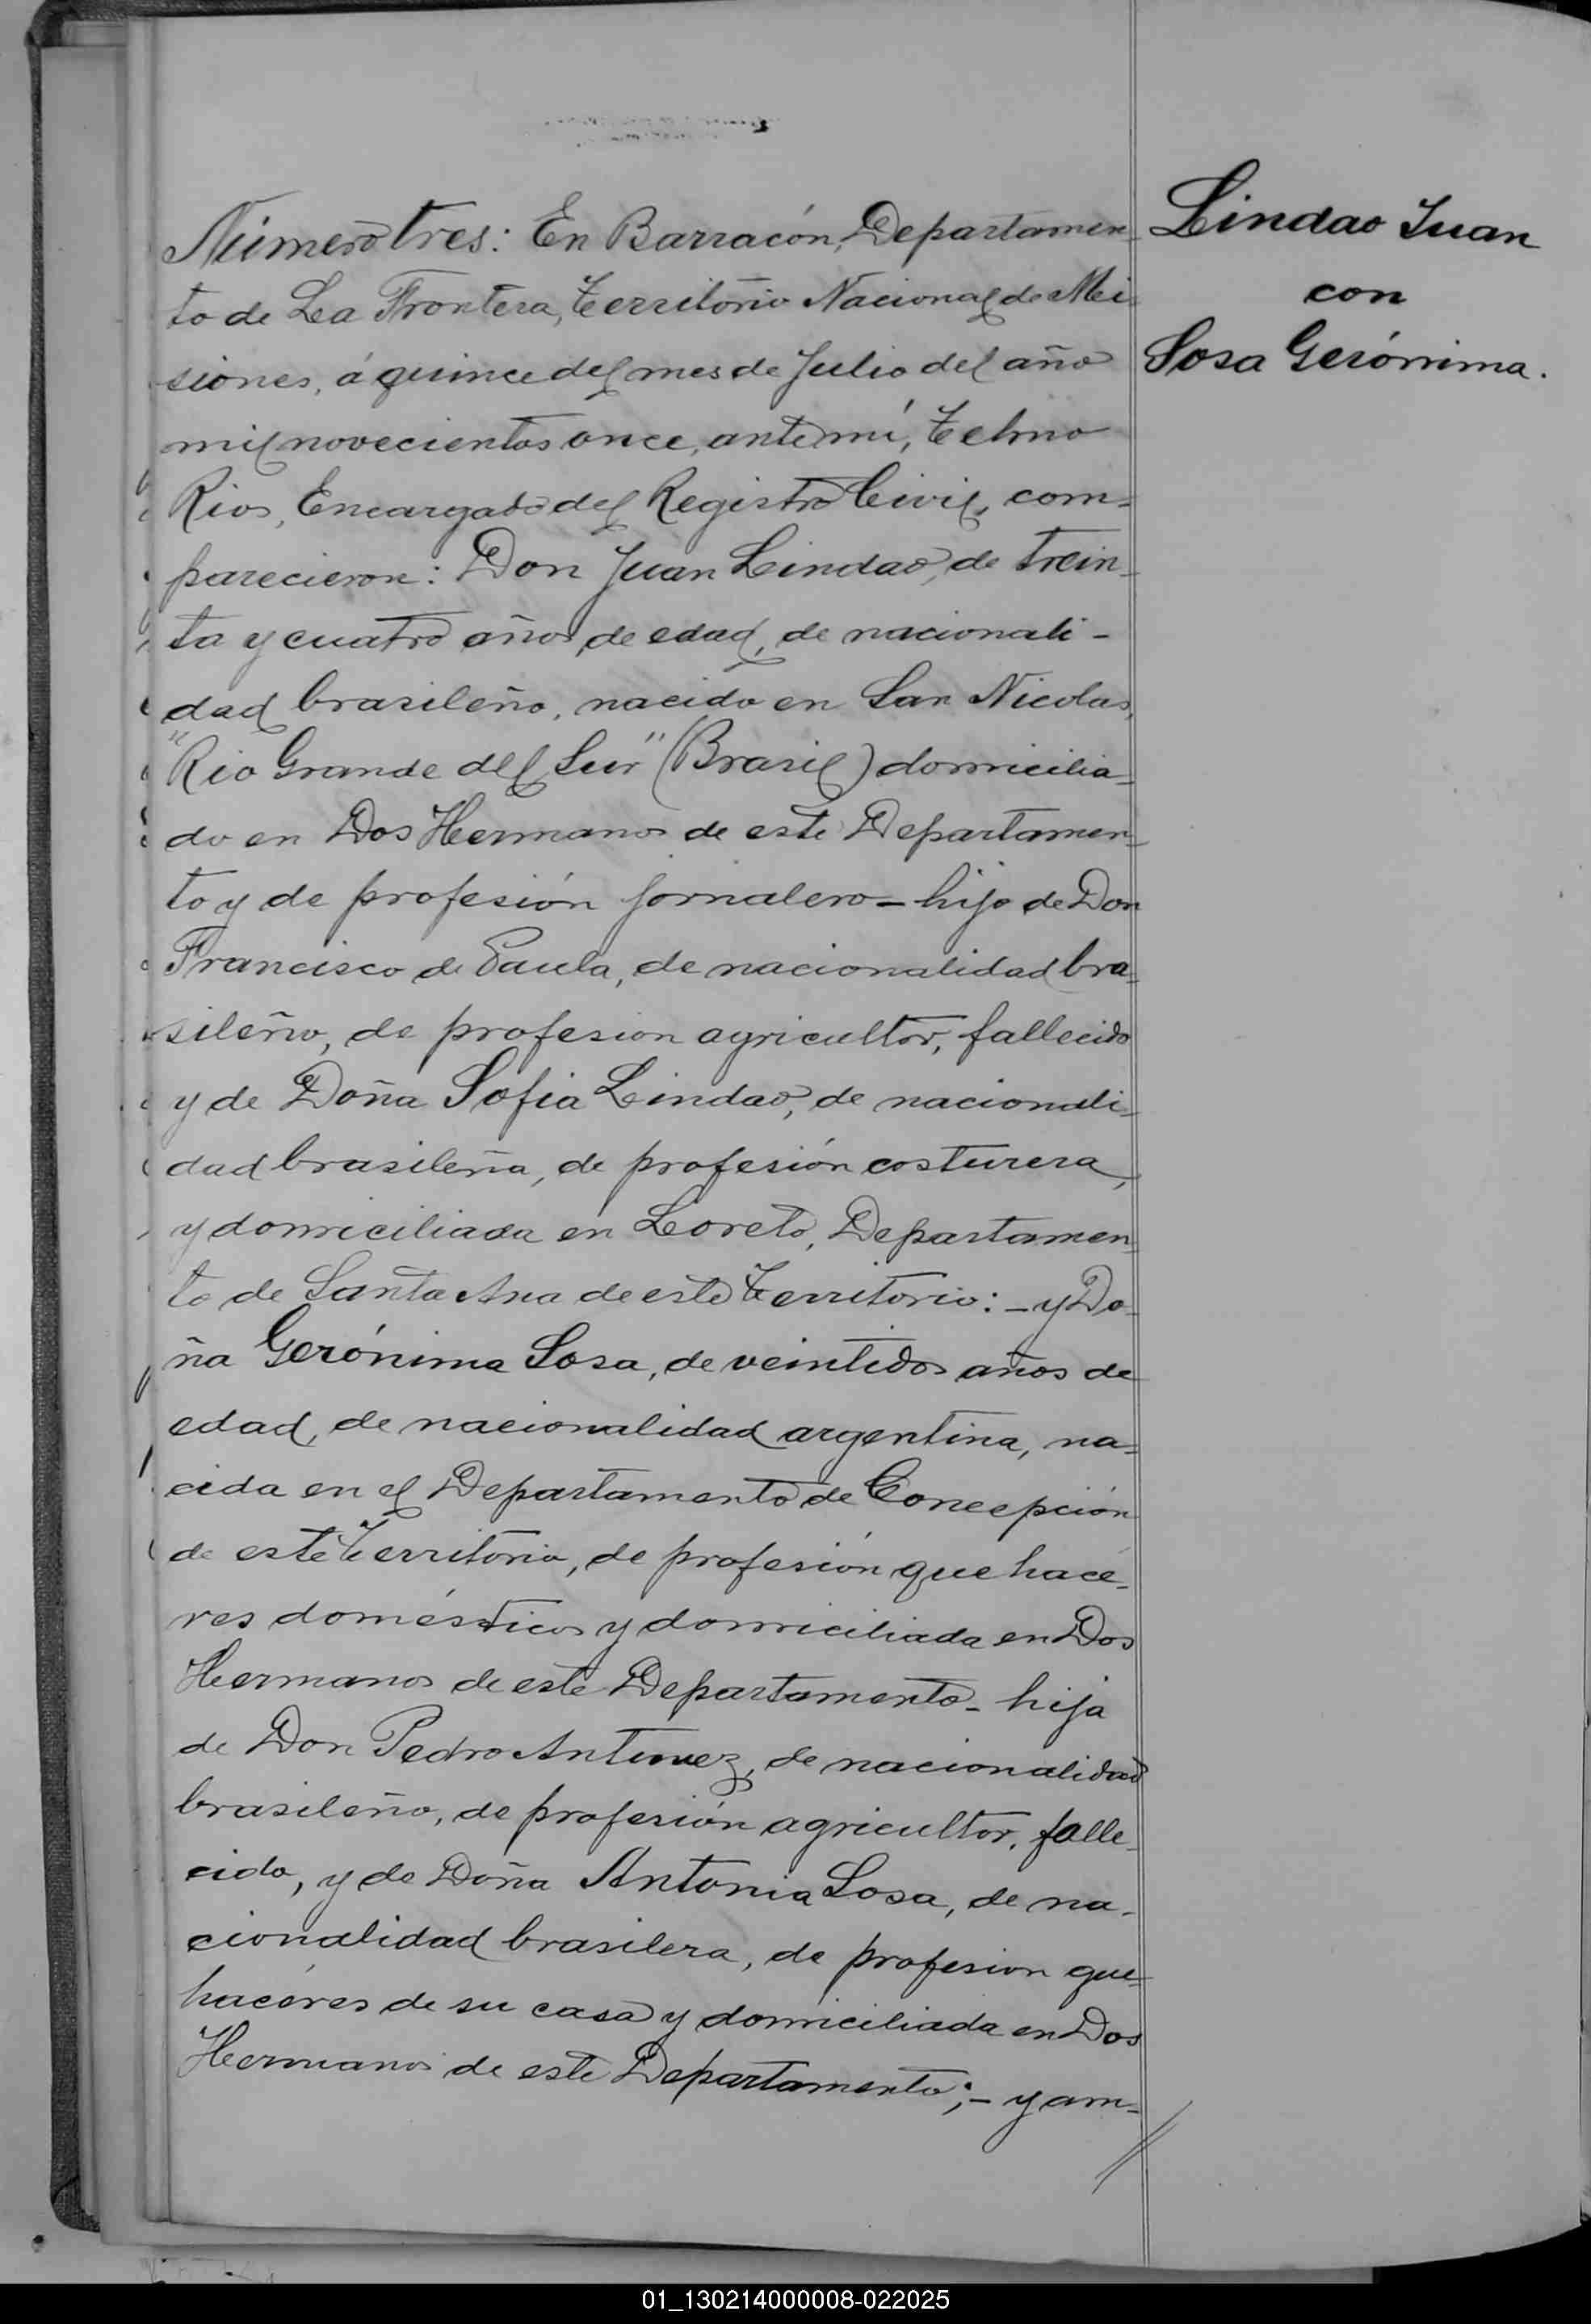 Número tres: En Barracón, Departamen-
to de La Frontera, Territorio Nacional de Mi-
siones, á quince del mes de Julio del año
mil novecientos once, ante mí, Telmo
Rios, Encargado del Registro Civil, com-
parecieron: Don Juan Lindao, de trein-
ta y cuatro años de edad, de nacionali-
dad brasileño, nacido en San Nicolas,
"Rio Grande del Sur" (Brasil) domicilia-
do en Dos Hermanos de este Departamen-
to y de profesión jornalero - hijo de Don
Francisco de Paula, de nacionalidad bra-
sileño, de profesion agricultor, fallecido
y de Doña Sofia Lindao, de nacionali-
dad brasileña, de profesión costurera,
y domiciliada en Loreto, Departamen-
to de Santa Ana de este Territorio: - y Do-
ña Gerónima Sosa, de veintidos años de
edad, de nacionalidad argentina, na-
cida en el Departamento de Concepción
de este Territorio, de profesión que hace-
res domésticos y domiciliada en Dos
Hermanos de este Departamento - hija
de Don Pedro Antunez, de nacionalidad
brasileño, de profesión agricultor, falle-
cido, y de Doña Antonia Sosa, de na-
cionalidad brasilera, de profesion que-
haceres de su casa y domiciliada en Dos
Hermanos de este Departamento; - y am-
//
Lindao Juan
con
Sosa Gerónima.
01_130214000008-022025